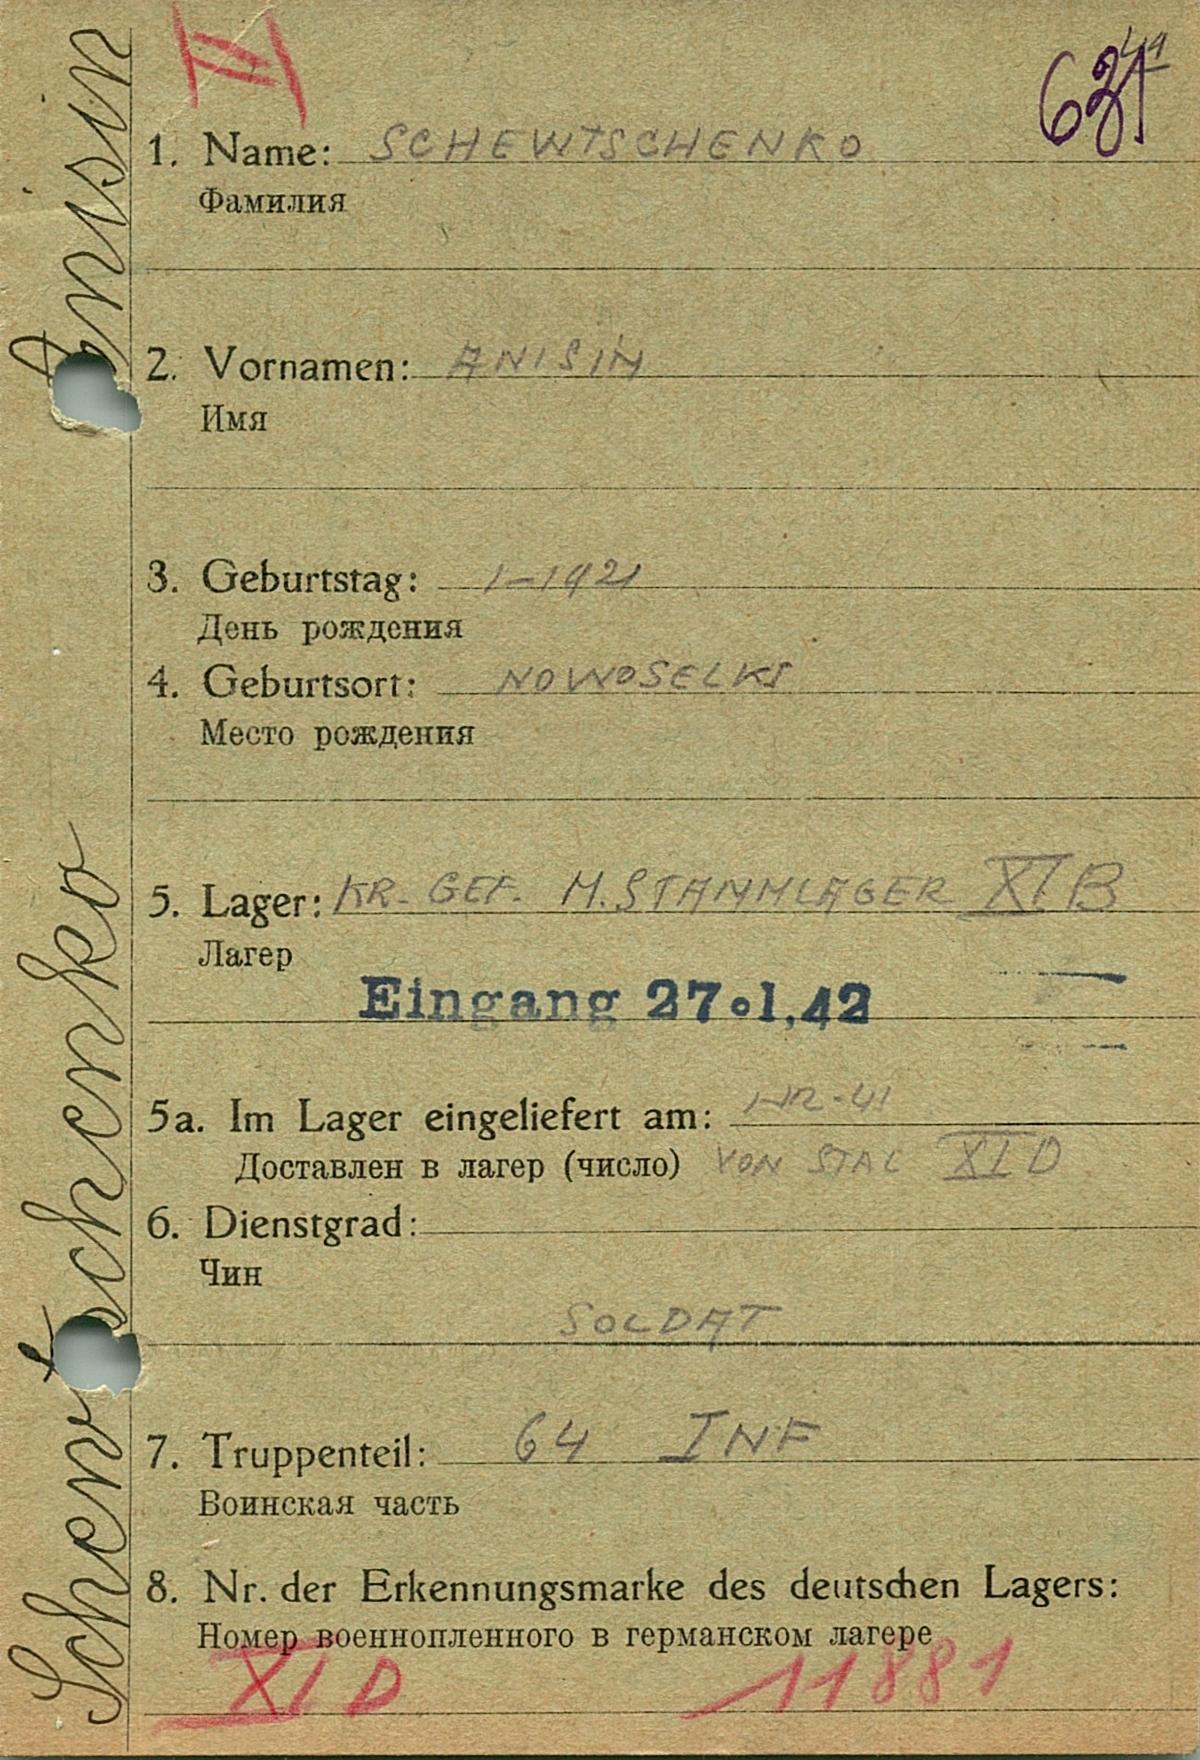 II
1. Name: SCHEWTSCHENKO
Фамилия
2. Vornamen: ANISIM
Имя
3. Geburtstag: 1-1921
День рождения
4. Geburtsort: NOWOSELKI
Место рождения
5. Lager: KR. GEF. M. STAMMLAGER XI B
Лагер
Eingang 27.1.42
5a. Im Lager eingeliefert am:
Доставлен в лагер (число) VON STAL XI D
6. Dienstgrad:
Чин
SOLDAT
7. Truppenteil: 64 INF
Воинская часть
8. Nr. der Erkennungsmarke des deutschen Lagers:
Номер военнопленного в германском лагере
XI D 11881
Schewtschenko Anisin